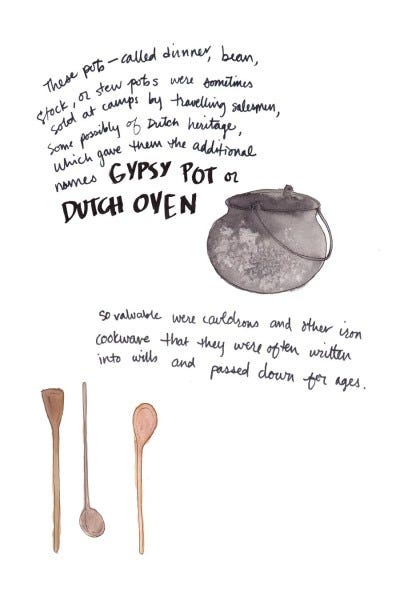 These pots—called dinner, bean,
stock, or stew pots were sometimes
sold at camps by travelling salesmen,
some possibly of Dutch heritage,
which gave them the additional
names GYPSY POT or
DUTCH OVEN
so valuable were cauldrons and other iron
cookware that they were often written
into wills and passed down for ages.